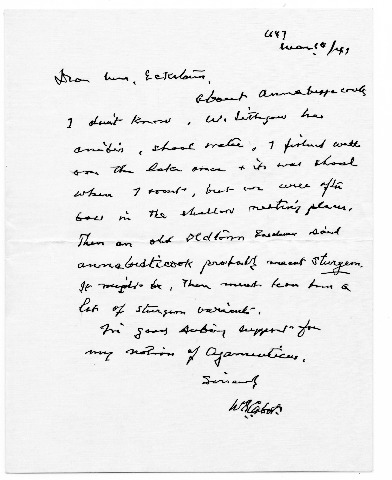 Dear Mrs. Eckstorm,
about Annabessacook
I don't know, W. Lithgow has
, shoal water, I fished well
on the lake once + it was shoal
where I went, but we were after
bass in the shallow nesting places.
Then an old Oldtown Indian said
annabisticook probably meant sturgeon.
It might be, There must have been a
lot of sturgeon variants.
I'm good support for
my notion of Agamenticus.
Sincerely
W.B. Cabot